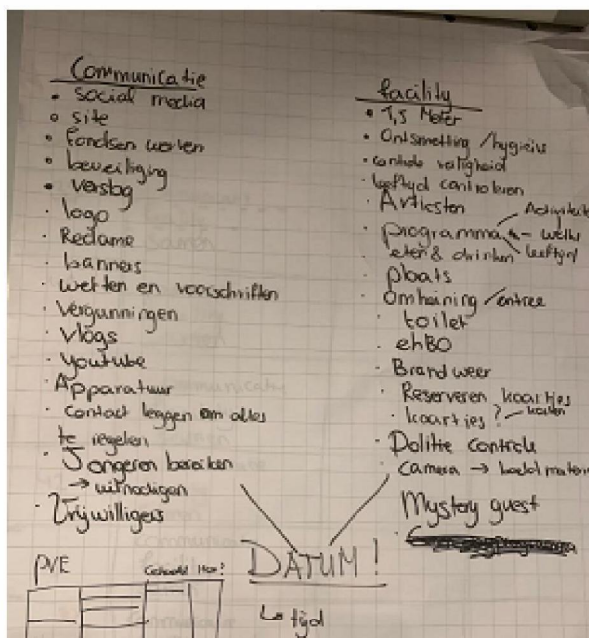 Communicatie
• social media
• site
• fondsen werven
• beveiliging
• verslag
· logo
· Reclame
· banners
· wetten en voorschriften
· vergunningen
· vlogs
· youtube
· Apparatuur
· contact leggen om alles
te regelen
· Jongeren bereiken
→ uitnodigen
· Vrijwilligers
facility
• 1,5 Meter
• Ontsmetting /hygiëne
• controle veiligheid
· leeftijd controleren
· Artiesten
· programma - welke
Activiteit
leeftijd
· eten & drinken
· plaats
· Omheining /entree
· toilet
· ehBO
· Brandweer
· Reserveren kaartjes
· kaartjes? - kosten
· Politie controle
· camera →
Mystery guest
DATUM!
↳ tijd
PVE